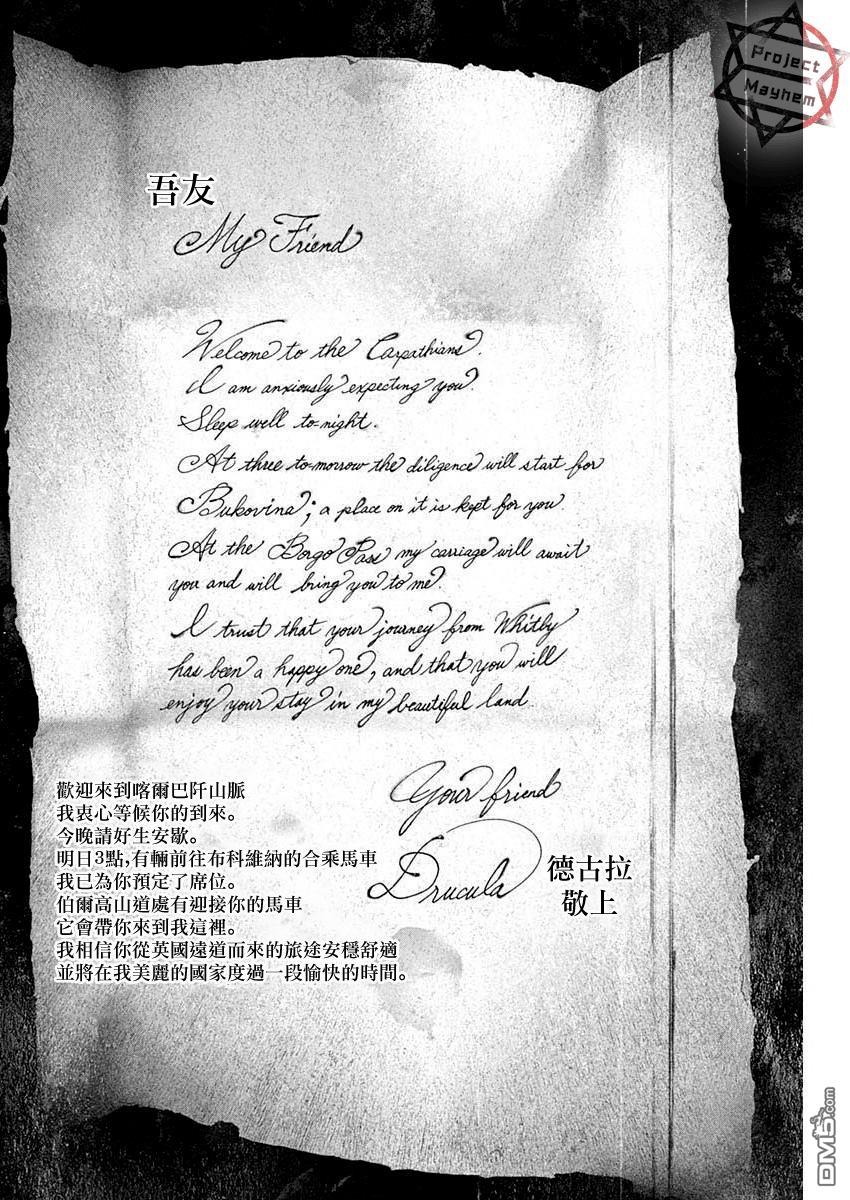 Project
Mayhem
吾友
My Friend
Welcome to the Carpathians.
I am anxiously expecting you.
Sleep well to-night.
At three to-morrow the diligence will start for
Bukovina; a place on it is kept for you.
At the Borgo Pass my carriage will await
you and will bring you to me.
I trust that your journey from Whitby
has been a happy one, and that you will
enjoy your stay in my beautiful land.
Your friend
Drucula
德古拉
敬上
歡迎來到喀爾巴阡山脈
我衷心等候你的到來。
今晚請好生安歇。
明日3點,有輛前往布科維納的合乘馬車
我已為你預定了席位。
伯爾高山道處有迎接你的馬車
它會帶你來到我這裡。
我相信你從英國遠道而來的旅途安穩舒適
並將在我美麗的國家度過一段愉快的時間。
DM5.com